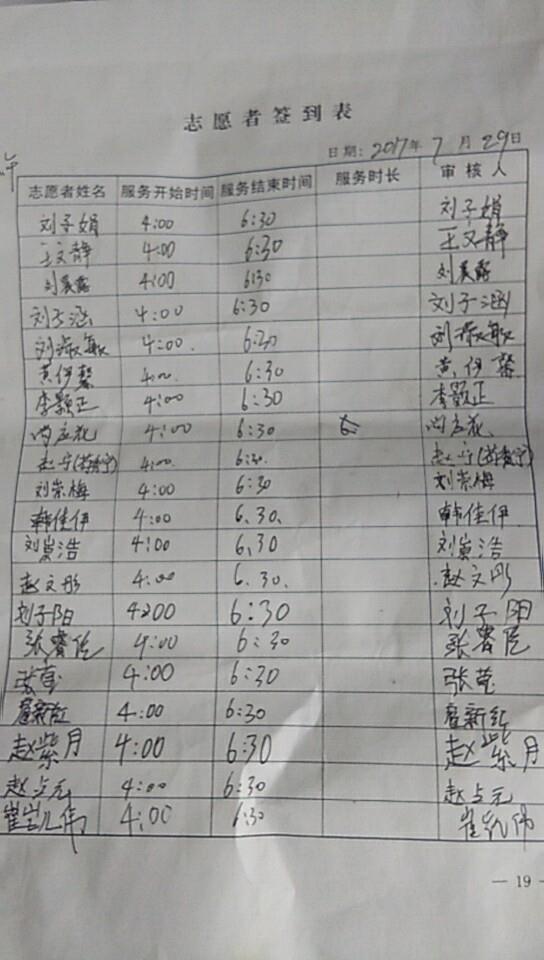 志愿者签到表
日期：2017年7月29日
志愿者姓名 服务开始时间 服务结束时间 服务时长 审核人
刘子娟 4:00 6:30 刘子娟
王文静 4:00 6:30 王文静
刘晨露 4:00 6:30 刘晨露
刘子涵 4:00 6:30 刘子涵
刘淑敏 4:00. 6:30 刘淑敏
黄伊馨 4:00. 6:30 黄伊馨
李颢正 4:00 6:30 李颢正
4:00 6:30
赵宁 4:00. 6:30. 赵宁
刘崇梅 4:00 6:30 刘崇梅
韩佳伊 4:00 6.30. 韩佳伊
刘崇浩 4:00 6.30 刘崇浩
赵文彤 4:00 6.30. 赵文彤
刘子阳 4:00 6:30 刘子阳
张睿 4:00 6:30 张睿
张莹 4:00 6:30 张莹
詹新红 4:00 6:30 詹新红
赵紫月 4:00 6:30 赵紫月
赵占元 4:00 6:30 赵占元
崔 伟 4:00 6:30 崔 伟
— 19 —